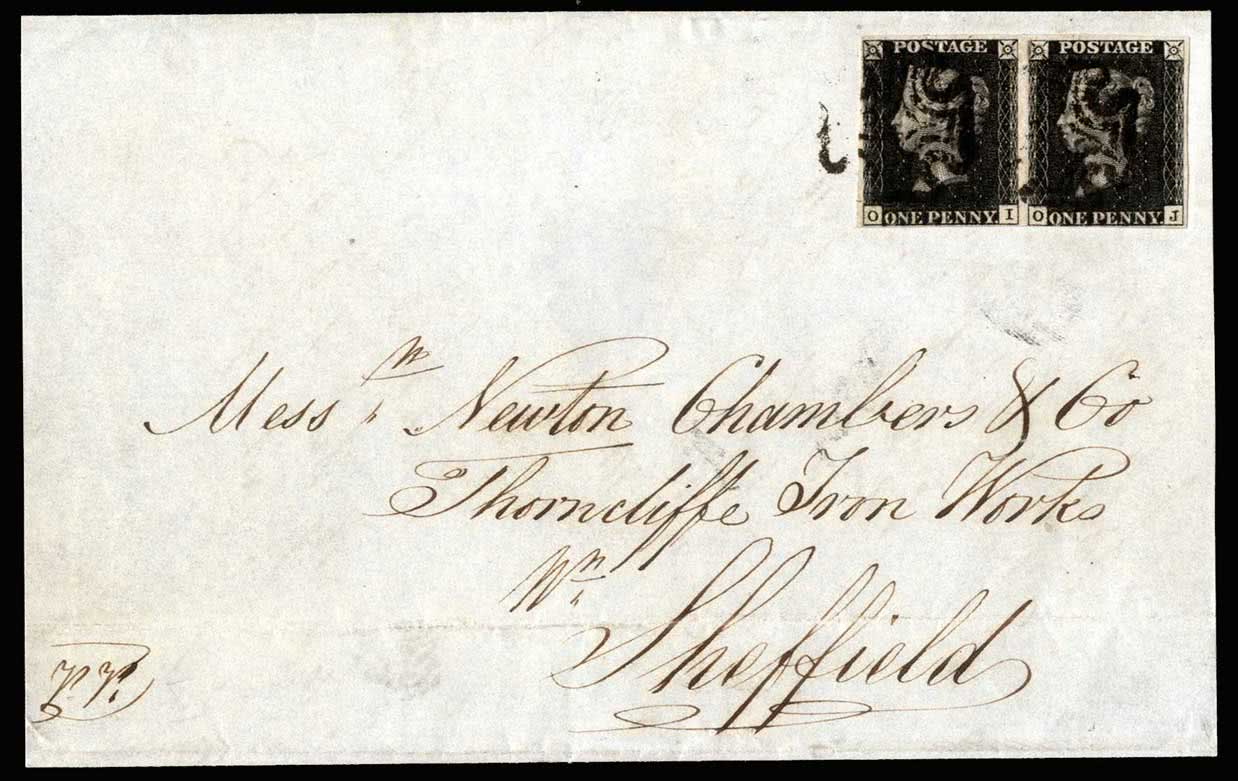 POSTAGE POSTAGE
O ONE PENNY. I O ONE PENNY. J
Mess.rs Newton Chambers & Co
Thorncliffe Iron Works
Nr
Sheffield